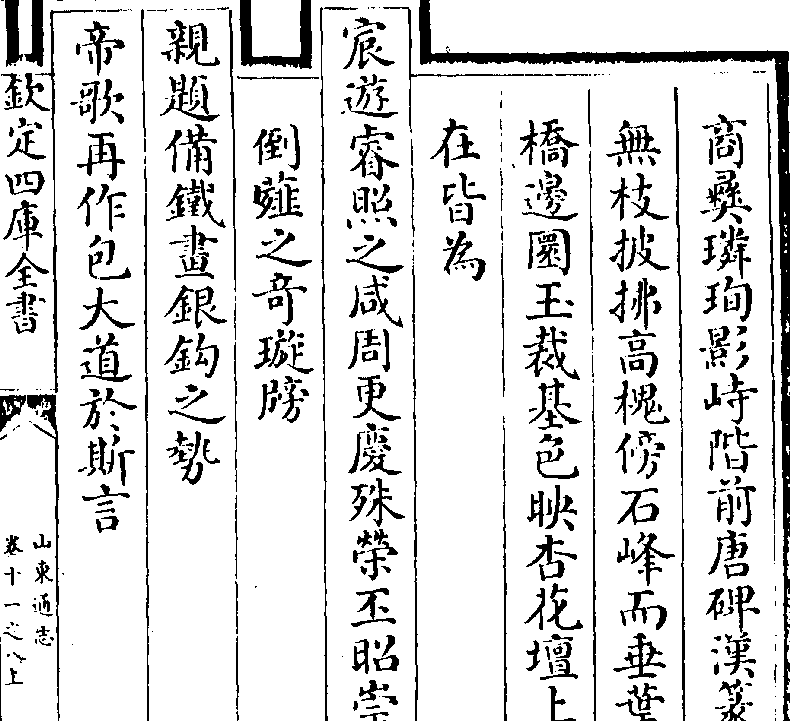 商彞璘珣影峙階前唐碑漢篆
無枝披拂高槐傍石峰而垂葉
橋邊圜玉裁基色映杏花壇上
在皆為
宸遊睿照之咸周更慶殊榮丕昭崇
倒薤之奇璇牓
親題備鐵畫銀鈎之勢
帝歌再作包大道於斯言
欽定四庫全書
山東通志
卷十一之八上